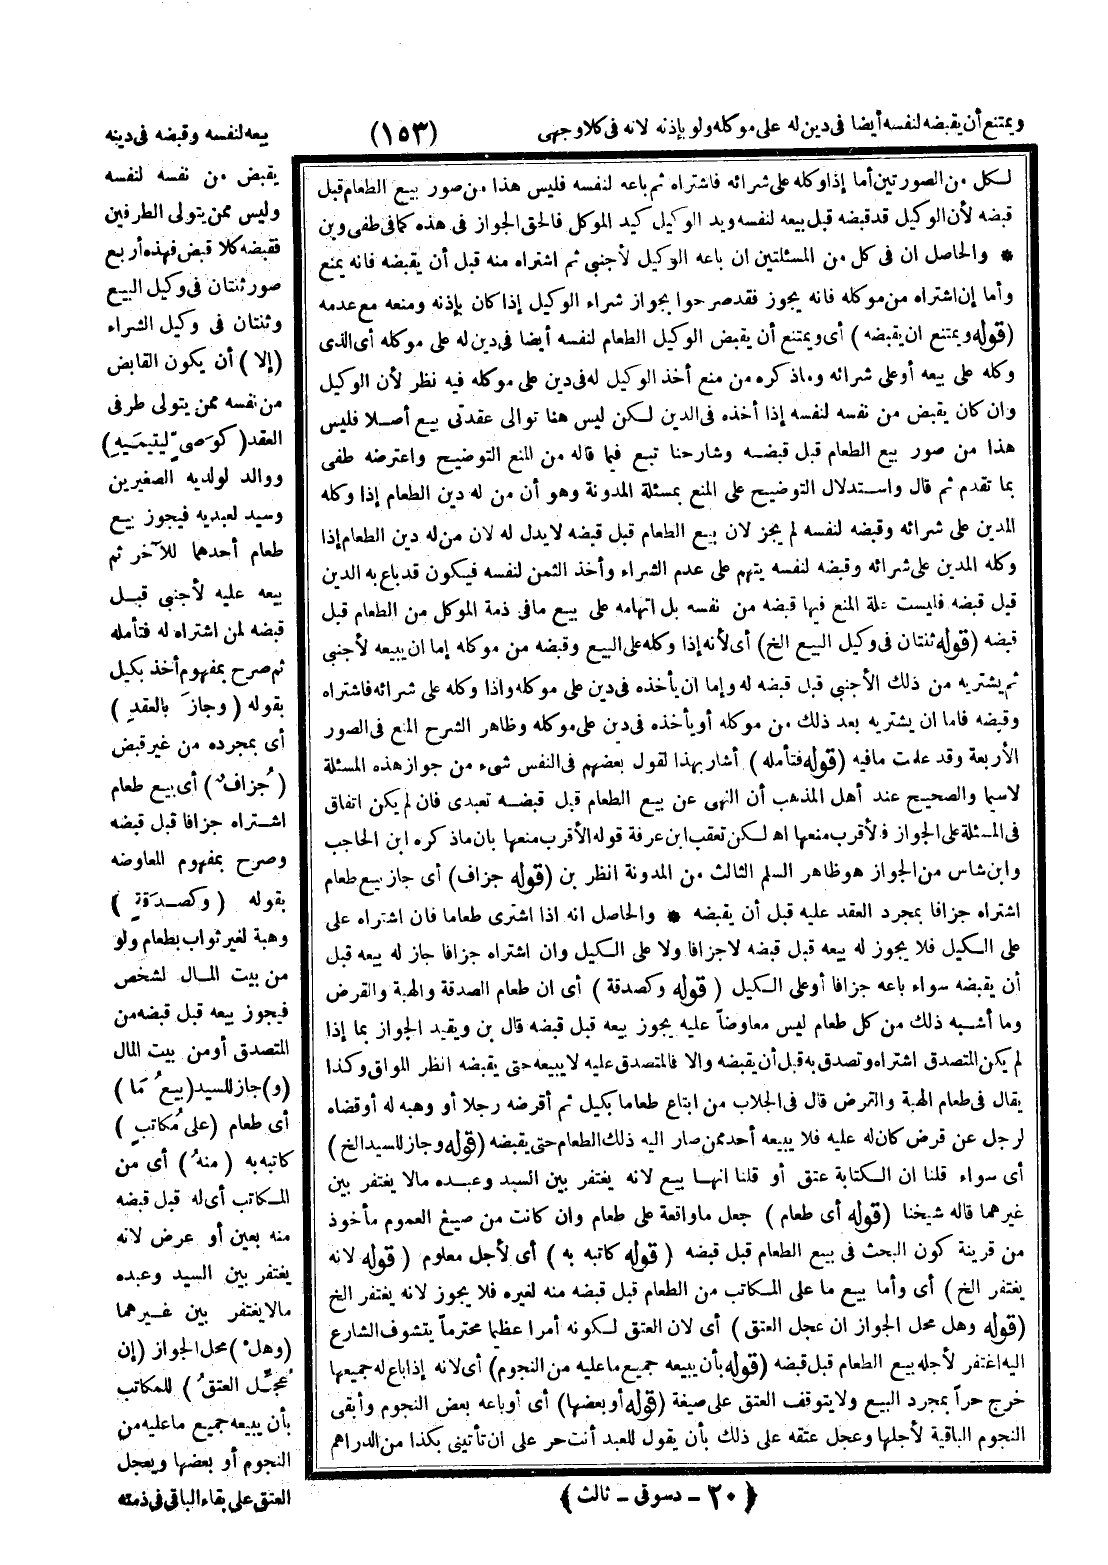 ويمتنع أن يقبضه لنفسه أيضا فى دين له على موكله ولو بإذنه لانه فى كلا وجهى
(١٥٣)
بيعه لنفسه وقبضه فى دينه
يقبض من نفسه لنفسه
وليس ممن يتولى الطرفين
فقبضه كلا قبض فهذه أربع
صور ثنتان فى وكيل البيع
وثنتان فى وكيل الشراء
(إلا) أن يكون القابض
من نفسه ممن يتولى طرفى
العقد (كوَصىٍّ ليتيمَيهِ)
ووالد لولديه الصغيرين
وسيد لعبديه فيجوز بيع
طعام أحدهما للآخر ثم
بيعه عليه لأجنبى قبل
قبضه لمن اشتراه له فتأمله
ثم صرح بمفهوم أخذ بكيل
بقوله (وجازَ بالعقدِ)
أى بمجرده من غير قبض
(جُزافٌ) أى بيع طعام
اشتراه جزافا قبل قبضه
وصرح بمفهوم المعاوضه
بقوله (وكصدَقةٍ)
وهبة لغير ثواب بطعام ولو
من بيت المال لشخص
فيجوز بيعه قبل قبضه من
المتصدق أو من بيت المال
(و) جاز للسيد (بيعُ مَا)
أى طعام (على مُكاتبٍ)
كاتبه به (منهُ) أى من
المكاتب أى له قبل قبضه
منه بعين أو عرض لانه
يغتفر بين السيد وعبده
مالا يغتفر بين غيرهما
(وهلْ) محل الجواز (إن
عُجِّل العتقُ) للمكاتب
بأن يبيعه جميع ما عليه من
النجوم أو بعضها ويعجل
العتق على بقاء الباقى فى ذمته
لكل من الصورتين أما إذا وكله على شرائه فاشتراه ثم باعه لنفسه فليس هذا من صور بيع الطعام قبل
قبضه لأن الوكيل قد قبضه قبل بيعه لنفسه ويد الوكيل كيد الموكل فالحق الجواز فى هذه كما فى طفى وبن
* والحاصل ان فى كل من المسئلتين ان باعه الوكيل لأجنبي ثم اشتراه منه قبل أن يقبضه فانه يمنع
وأما إن اشتراه من موكله فانه يجوز فقد صرحوا بجواز شراء الوكيل إذا كان بإذنه ومنعه مع عدمه
(قوله ويمتنع ان يقبضه) أى ويمتنع أن يقبض الوكيل الطعام لنفسه أيضا فى دين له على موكله أى الذى
وكله على بيعه أو على شرائه وما ذكره من منع أخذ الوكيل له فى دين على موكله فيه نظر لأن الوكيل
وان كان يقبض من نفسه لنفسه إذا أخذه فى الدين لكن ليس هنا توالى عقدتى بيع أصلا فليس
هذا من صور بيع الطعام قبل قبضه وشارحنا تبع فيما قاله من المنع التوضيح واعترضه طفى
بما تقدم ثم قال واستدلال التوضيح على المنع بمسئلة المدونة وهو أن من له دين الطعام إذا وكله
المدين على شرائه وقبضه لنفسه لم يجز لان بيع الطعام قبل قبضه لا يدل له لان من له دين الطعام إذا
وكله المدين على شرائه وقبضه لنفسه يتهم على عدم الشراء وأخذ الثمن لنفسه فيكون قد باع به الدين
قبل قبضه فليست علة المنع فيها قبضه من نفسه بل اتهامه على بيع ما فى ذمة الموكل من الطعام قبل
قبضه (قوله ثنتان فى وكيل البيع الخ) أى لأنه إذا وكله على البيع وقبضه من موكله إما ان يبيعه لأجنبى
ثم يشتريه من ذلك الأجنبى قبل قبضه له وإما ان يأخذه فى دين على موكله واذا وكله على شرائه فاشتراه
وقبضه فاما ان يشتريه بعد ذلك من موكله أو يأخذه فى دين على موكله وظاهر الشرح المنع فى الصور
الأربعة وقد علمت ما فيه (قوله فتأمله) أشار بهذا لقول بعضهم فى النفس شىء من جواز هذه المسئلة
لاسيما والصحيح عند أهل المذهب أن النهى عن بيع الطعام قبل قبضه تعبدى فان لم يكن اتفاق
فى المسئلة على الجواز فالأقرب منعها اه لكن تعقب ابن عرفة قوله الأقرب منعها بان ما ذكره ابن الحاجب
وابن شاس من الجواز هو ظاهر السلم الثالث من المدونة انظر بن (قوله جزاف) أى جاز بيع طعام
اشتراه جزافا بمجرد العقد عليه قبل أن يقبضه * والحاصل انه اذا اشترى طعاما فان اشتراه على
على الكيل فلا يجوز له بيعه قبل قبضه لا جزافا ولا على الكيل وان اشتراه جزافا جاز له بيعه قبل
أن يقبضه سواء باعه جزافا أو على الكيل (قوله وكصدقة) أى ان طعام الصدقة والهبة والقرض
وما أشبه ذلك من كل طعام ليس معاوضاً عليه يجوز بيعه قبل قبضه قال بن ويقيد الجواز بما إذا
لم يكن المتصدق اشتراه وتصدق به قبل أن يقبضه والا فالمتصدق عليه لا يبيعه حتى يقبضه انظر المواق وكذا
يقال فى طعام الهبة والقرض قال فى الجلاب من ابتاع طعاما بكيل ثم أقرضه رجلا أو وهبه له أو قضاه
لرجل عن قرض كان له عليه فلا يبيعه أحد ممن صار اليه ذلك الطعام حتى يقبضه (قوله وجاز للسيد الخ)
أى سواء قلنا ان الكتابة عتق أو قلنا انها بيع لانه يغتفر بين السيد وعبده مالا يغتفر بين
غيرهما قاله شيخنا (قوله أى طعام) جعل ما واقعة على طعام وان كانت من صيغ العموم مأخوذ
من قرينة كون البحث فى بيع الطعام قبل قبضه (قوله كاتبه به) أى لأجل معلوم (قوله لانه
يغتفر الخ) أى وأما بيع ما على المكاتب من الطعام قبل قبضه منه لغيره فلا يجوز لانه يغتفر الخ
(قوله وهل محل الجواز ان عجل العتق) أى لان العتق لكونه أمرا عظيما محترماً يتشوف الشارع
اليه اغتفر لأجله بيع الطعام قبل قبضه (قوله بأن يبيعه جميع ما عليه من النجوم) أى لانه إذا باع له جميعها
خرج حراً بمجرد البيع ولا يتوقف العتق على صيغة (قوله أو بعضها) أى أو باعه بعض النجوم وأبقى
النجوم الباقية لأجلها وعجل عتقه على ذلك بأن يقول للعبد أنت حر على ان تأتينى بكذا من الدراهم
(٢٠ - دسوقى - ثالث)